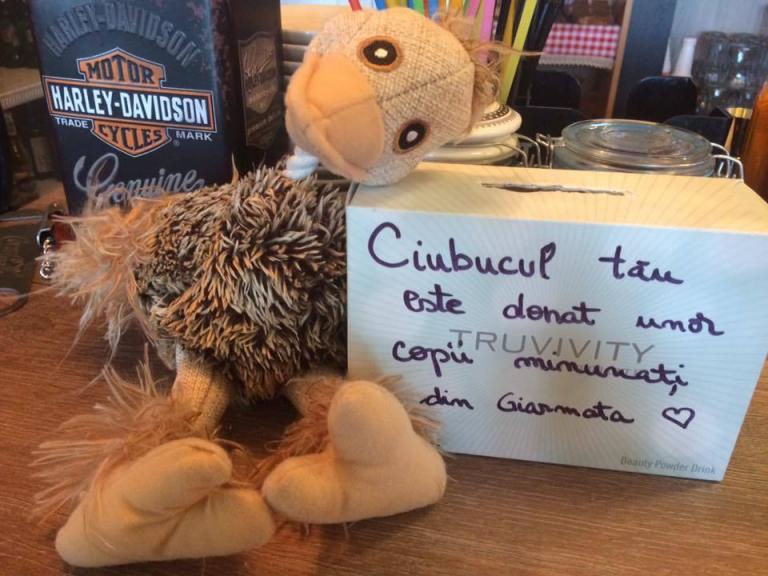 HARLEY-DAVIDSON
MOTOR
HARLEY-DAVIDSON
TRADE MARK
CYCLES
®
Genuine
Ciubucul tău
este donat unor
TRUVIVITY
copii minunați
din Giarmata ♡
Beauty Powder Drink